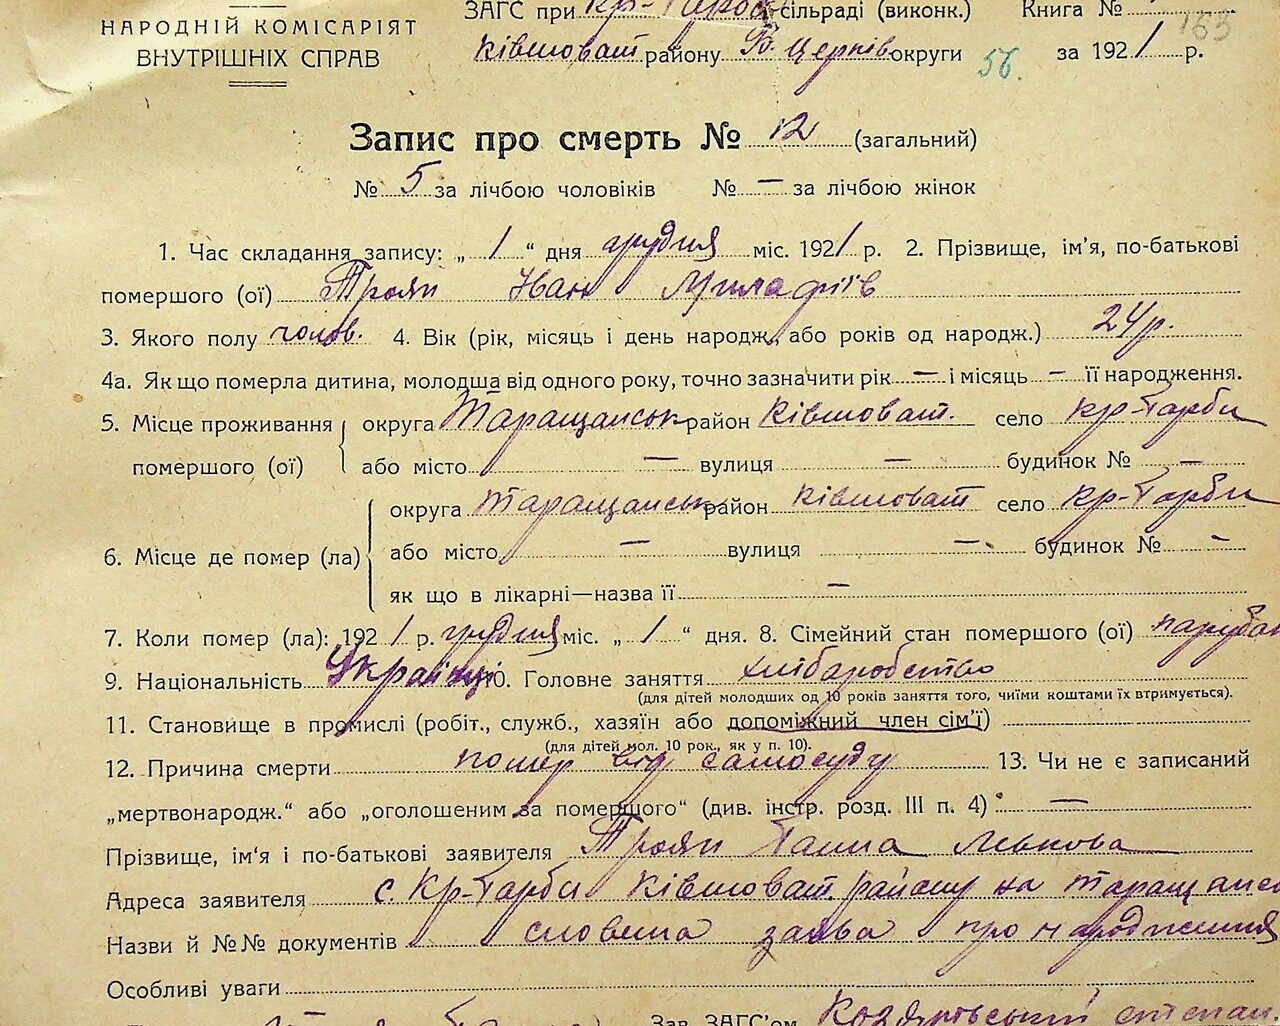 НАРОДНІЙ КОМІСАРІЯТ
ВНУТРІШНІХ СПРАВ
ЗАГС при Кр- сільраді (виконк.) Книга №
Ківшоват району Б. Церків округи 56. за 1921 р.
163
Запис про смерть № 12 (загальний)
№ 5 за лічбою чоловіків № — за лічбою жінок
1. Час складання запису: „ 1 “ дня грудня міс. 1921 р. 2. Прізвище, ім’я, по-батькові
помершого (ої) Троян Іван
3. Якого полу чолов. 4. Вік (рік, місяць і день народж., або років од народж.) 24 р.
4а. Як що померла дитина, молодша від одного року, точно зазначити рік — і місяць — її народження.
5. Місце проживання помершого (ої)
округа Таращанськ район Ківшоват. село Кр-Гарби
або місто — вулиця — будинок № —
6. Місце де помер (ла)
округа Таращанськ район Ківшоват село Кр-Гарби
або місто — вулиця — будинок № —
як що в лікарні—назва її —
7. Коли помер (ла): 1921 р. грудня міс. „ 1 “ дня. 8. Сімейний стан помершого (ої) парубок
9. Національність Українці 10. Головне заняття хліборобство
(для дітей молодших од 10 років заняття того, чиїми коштами їх втримується).
11. Становище в промислі (робіт., служб., хазяїн або допоміжний член сім’ї)
(для дітей мол. 10 рок., як у п. 10).
12. Причина смерти помер від самосуду 13. Чи не є записаний
„мертвонародж.“ або „оголошеним за помершого“ (див. інстр. розд. III п. 4) —
Прізвище, ім‘я і по-батькові заявителя Троян Ганна Левкова
Адреса заявителя с. Кр-Гарби Ківшоват. району на Таращанськ
Назви й №№ документів словесна заява про народження
Особливі уваги
Зав. ЗАГС’ом